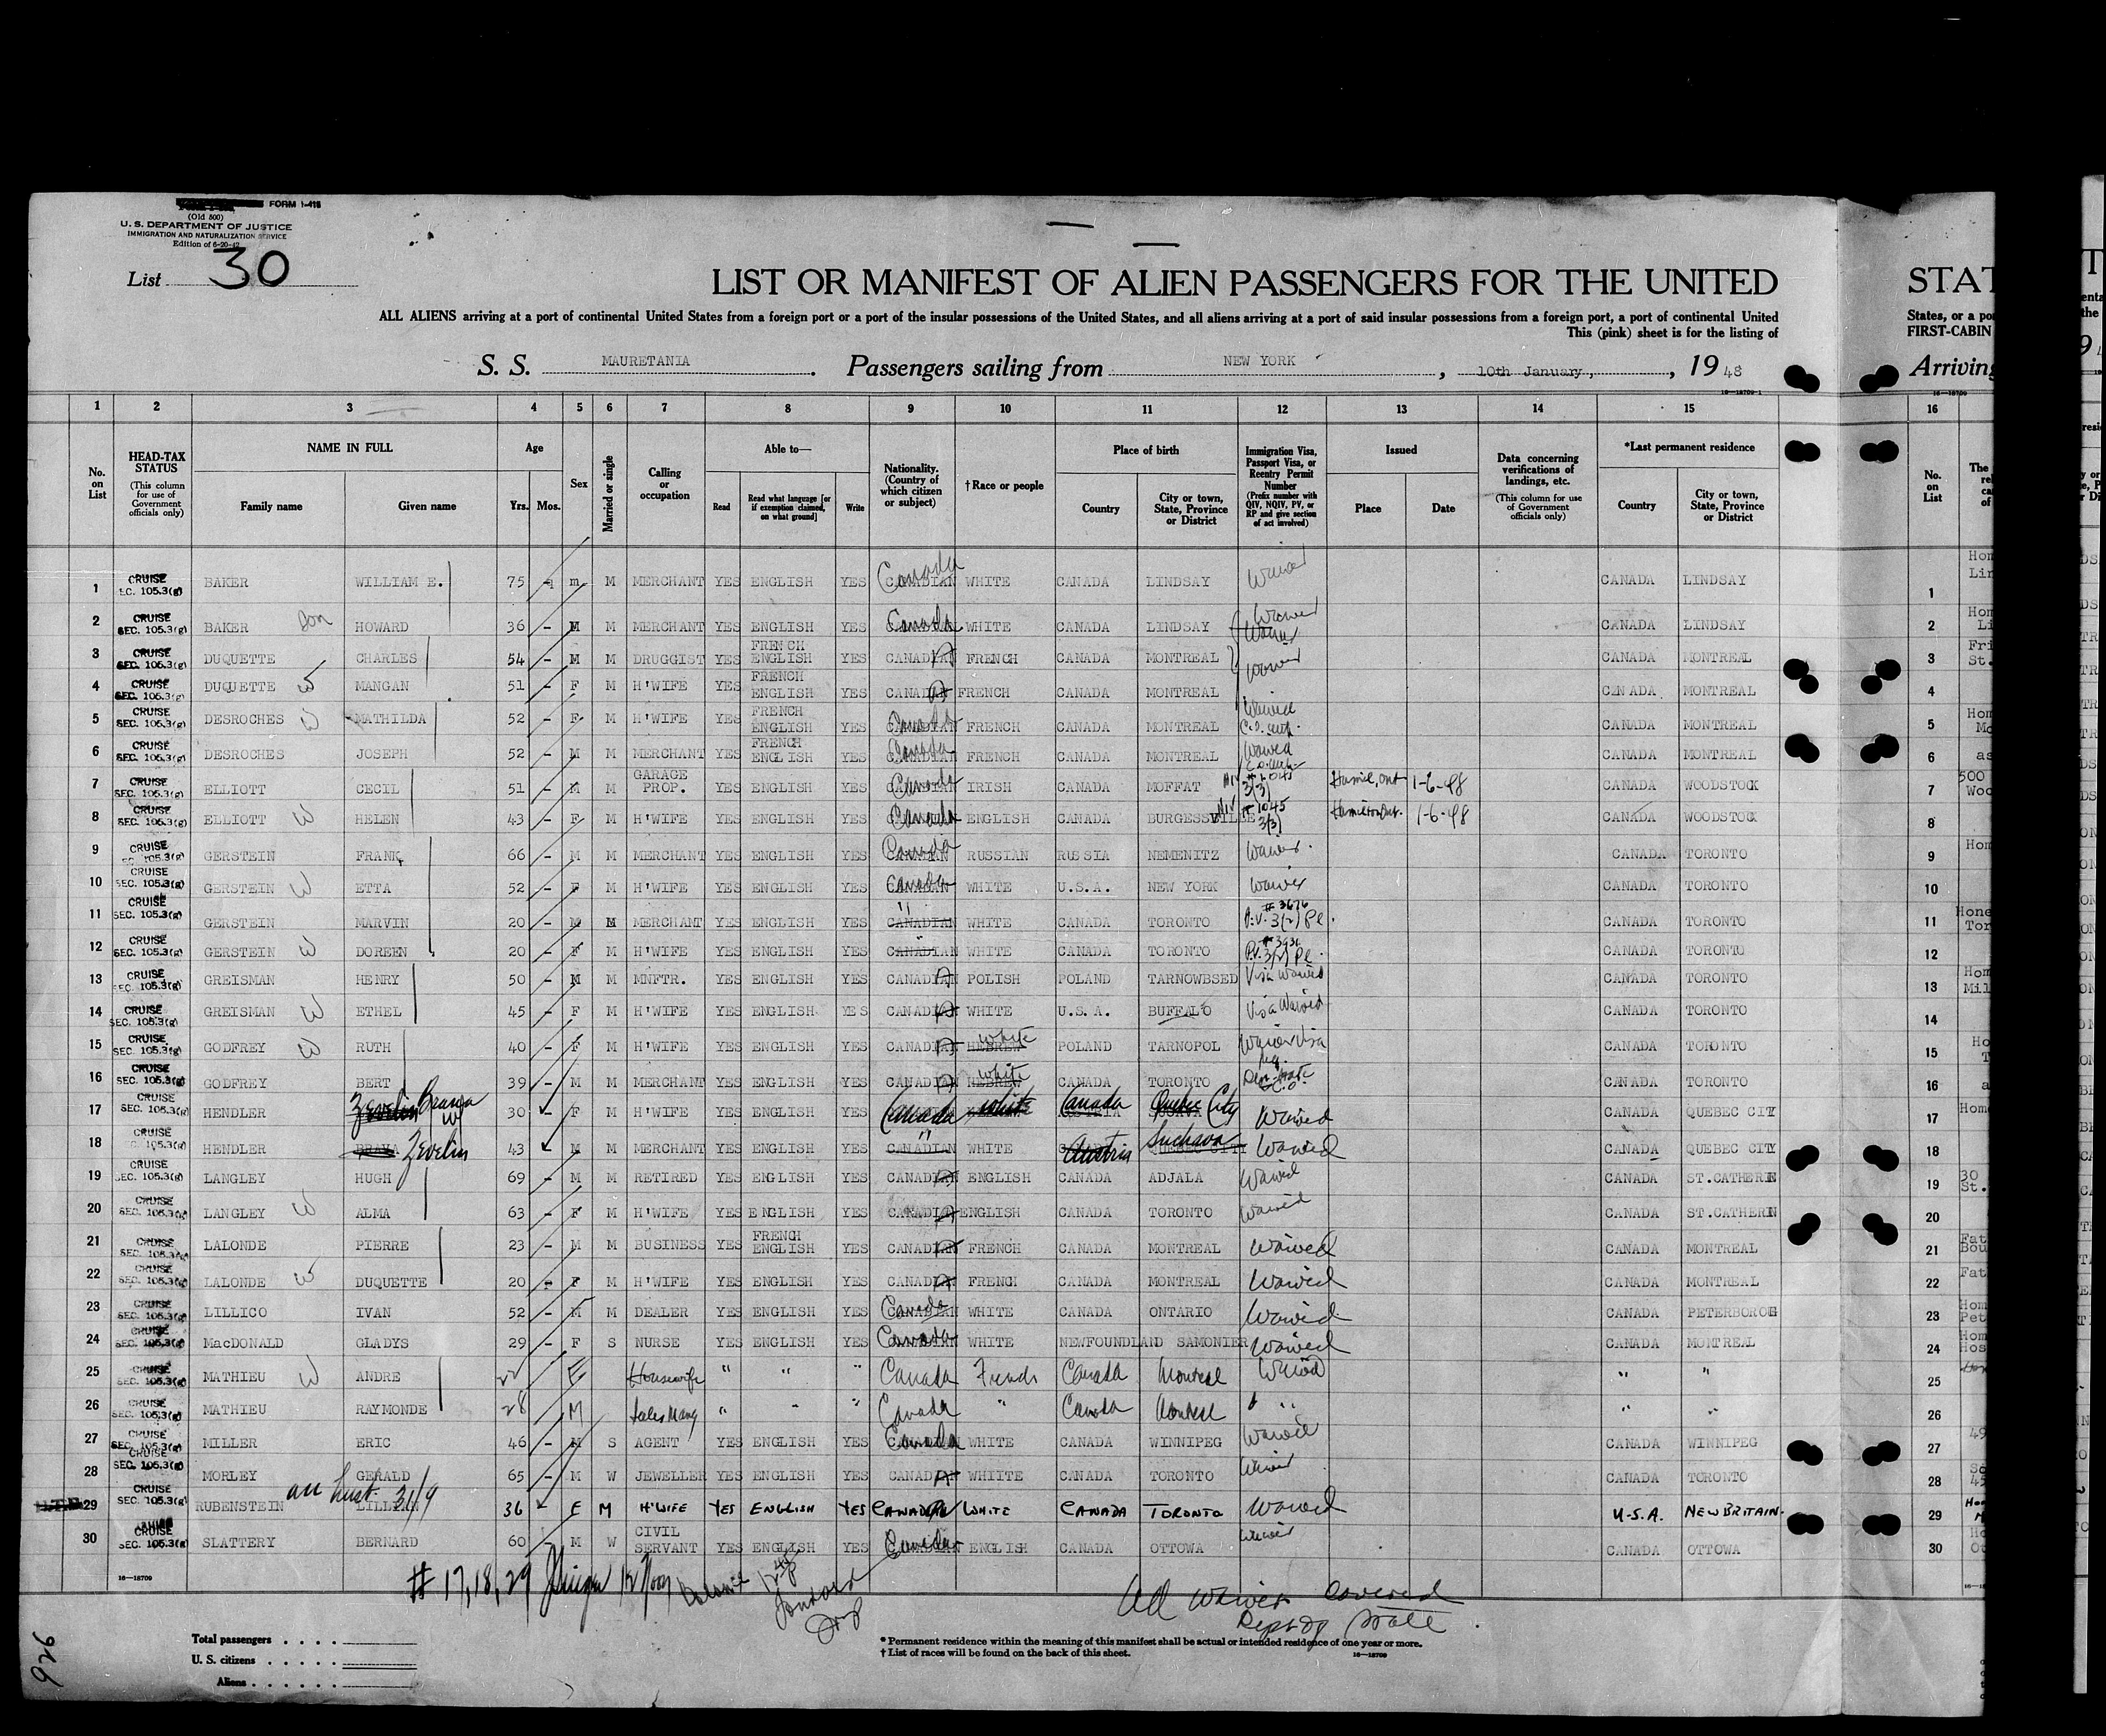 FORM I-418
(Old 500)
U. S. DEPARTMENT OF JUSTICE
IMMIGRATION AND NATURALIZATION SERVICE
Edition of 6-20-42
List 30
LIST OR MANIFEST OF ALIEN PASSENGERS FOR THE UNITED
STAT
ALL ALIENS arriving at a port of continental United States from a foreign port or a port of the insular possessions of the United States, and all aliens arriving at a port of said insular possessions from a foreign port, a port of continental United
States, or a po
This (pink) sheet is for the listing of
FIRST-CABIN
S. S. MAURETANIA. Passengers sailing from NEW YORK, 10th January, , 19 48
Arriving
16—18709-1
16—18709
1 2 3 4 5 6 7 8 9 10 11 12 13 14 15 16
No. on List
HEAD-TAX STATUS (This column for use of Government officials only)
NAME IN FULL Family name Given name
Age Yrs. Mos.
Sex
Married or single
Calling or occupation
Able to— Read Read what language [or if exemption claimed, on what ground] Write
Nationality. (Country of which citizen or subject)
†Race or people
Place of birth Country City or town, State, Province or District
Immigration Visa, Passport Visa, or Reentry Permit Number (Prefix number with QIV, NQIV, PV, or RP and give section of act involved)
Issued Place Date
Data concerning verifications of landings, etc. (This column for use of Government officials only)
*Last permanent residence Country City or town, State, Province or District
No. on List
1 CRUISE EC. 105.3(g) BAKER WILLIAM E. 75 - m M MERCHANT YES ENGLISH YES CANADIAN Canada WHITE CANADA LINDSAY Waiver CANADA LINDSAY 1
2 CRUISE SEC. 105.3(g) BAKER Son HOWARD 36 - M M MERCHANT YES ENGLISH YES Canada WHITE CANADA LINDSAY Waiver CANADA LINDSAY 2
3 CRUISE SEC. 105.3(g) DUQUETTE CHARLES 54 - M M DRUGGIST YES FRENCH ENGLISH YES CANADIAN FRENCH CANADA MONTREAL Waiver CANADA MONTREAL 3
4 CRUISE SEC. 105.3(g) DUQUETTE W MANGAN 51 - F M H'WIFE YES FRENCH ENGLISH YES CANADIAN FRENCH CANADA MONTREAL CANADA MONTREAL 4
5 CRUISE SEC. 105.3(g) DESROCHES W MATHILDA 52 - F M H'WIFE YES FRENCH ENGLISH YES Canada FRENCH CANADA MONTREAL Waived CANADA MONTREAL 5
6 CRUISE SEC. 105.3(g) DESROCHES JOSEPH 52 - M M MERCHANT YES FRENCH ENGLISH YES CANADIAN Canada FRENCH CANADA MONTREAL Waived CANADA MONTREAL 6
7 CRUISE SEC. 105.3(g) ELLIOTT CECIL 51 - M M GARAGE PROP. YES ENGLISH YES Canada IRISH CANADA MOFFAT 3(3) Hamil, Ont 1-6-48 CANADA WOODSTOCK 7
8 CRUISE SEC. 105.3(g) ELLIOTT W HELEN 43 - F M H'WIFE YES ENGLISH YES Canada ENGLISH CANADA BURGESSVILLE 1045 3(3) Hamilton Ont. 1-6-48 CANADA WOODSTOCK 8
9 CRUISE EC. 105.3(g) GERSTEIN FRANK 66 - M M MERCHANT YES ENGLISH YES CANADIAN Canada RUSSIAN RUSSIA NEMENITZ Waiver. CANADA TORONTO 9
10 CRUISE SEC. 105.3(g) GERSTEIN W ETTA 52 - F M H'WIFE YES ENGLISH YES CANADIAN Canada WHITE U.S.A. NEW YORK Waiver CANADA TORONTO 10
11 CRUISE SEC. 105.3(g) GERSTEIN MARVIN 20 - M M MERCHANT YES ENGLISH YES CANADIAN " WHITE CANADA TORONTO #3676 P.V. 3(2) Pl. CANADA TORONTO 11
12 CRUISE SEC. 105.3(g) GERSTEIN W DOREEN 20 - F M H'WIFE YES ENGLISH YES CANADIAN " WHITE CANADA TORONTO P.V. 3(2) Pl. CANADA TORONTO 12
13 CRUISE SEC. 105.3(g) GREISMAN HENRY 50 - M M MNFTR. YES ENGLISH YES CANADIAN POLISH POLAND TARNOWBSED Visa Waived CANADA TORONTO 13
14 CRUISE SEC. 105.3(g) GREISMAN W ETHEL 45 - F M H'WIFE YES ENGLISH YES CANADIAN WHITE U.S.A. BUFFALO Visa Waived CANADA TORONTO 14
15 CRUISE SEC. 105.3(g) GODFREY W RUTH 40 - F M H'WIFE YES ENGLISH YES CANADIAN HEBREW White POLAND TARNOPOL Waiver Visa CANADA TORONTO 15
16 CRUISE SEC. 105.3(g) GODFREY BERT 39 - M M MERCHANT YES ENGLISH YES CANADIAN HEBREW White CANADA TORONTO CANADA TORONTO 16
17 CRUISE SEC. 105.3(g) HENDLER Zevelin Brana W 30 F M H'WIFE YES ENGLISH YES Canada White Canada Quebec City Waived CANADA QUEBEC CITY 17
18 CRUISE SEC. 105.3(g) HENDLER BRANA Zevelin 43 M M MERCHANT YES ENGLISH YES CANADIAN " WHITE Austria Suchava QUEBEC CITY Waived CANADA QUEBEC CITY 18
19 CRUISE SEC. 105.3(g) LANGLEY HUGH 69 - M M RETIRED YES ENGLISH YES CANADIAN ENGLISH CANADA ADJALA Waived CANADA ST.CATHERIN 19
20 CRUISE SEC. 105.3(g) LANGLEY W ALMA 63 - F M H'WIFE YES ENGLISH YES CANADIAN ENGLISH CANADA TORONTO Waived CANADA ST.CATHERIN 20
21 CRUISE SEC. 105.3(g) LALONDE PIERRE 23 - M M BUSINESS YES FRENCH ENGLISH YES CANADIAN FRENCH CANADA MONTREAL Waived CANADA MONTREAL 21
22 CRUISE SEC. 105.3(g) LALONDE W DUQUETTE 20 - F M H'WIFE YES ENGLISH YES CANADIAN FRENCH CANADA MONTREAL Waived CANADA MONTREAL 22
23 CRUISE SEC. 105.3(g) LILLICO IVAN 52 - M M DEALER YES ENGLISH YES CANADIAN Canada WHITE CANADA ONTARIO Waived CANADA PETERBOROUGH 23
24 CRUISE SEC. 105.3(g) MacDONALD GLADYS 29 - F S NURSE YES ENGLISH YES Canada WHITE NEWFOUNDLAND SAMONIER Waived CANADA MONTREAL 24
25 CRUISE SEC. 105.3(g) MATHIEU W ANDRE 22 F Housewife " " " Canada French Canada Montreal Waived " " 25
26 CRUISE SEC. 105.3(g) MATHIEU RAYMONDE 28 M Sales Mang " " " Canada " Canada Montreal " " " 26
27 CRUISE SEC. 105.3(g) MILLER ERIC 46 - M S AGENT YES ENGLISH YES Canada WHITE CANADA WINNIPEG Waived CANADA WINNIPEG 27
28 CRUISE SEC. 105.3(g) MORLEY GERALD 65 - M W JEWELLER YES ENGLISH YES CANADIAN WHIITE CANADA TORONTO Waiver CANADA TORONTO 28
29 CRUISE SEC. 105.3(g) RUBENSTEIN LILLIAN 36 F M H'WIFE YES ENGLISH YES CANADA WHITE CANADA TORONTO Waived U.S.A. NEW BRITAIN. 29
30 CRUISE SEC. 105.3(g) SLATTERY BERNARD 60 - M W CIVIL SERVANT YES ENGLISH YES Canada ENGLISH CANADA OTTOWA Waiver CANADA OTTOWA 30
16—18709
# 17, 18, 29
All waiver covered
Dept of State
Total passengers . . . .
U. S. citizens . . . . .
Aliens . . . . . .
* Permanent residence within the meaning of this manifest shall be actual or intended residence of one year or more.
† List of races will be found on the back of this sheet.
16—18709
926